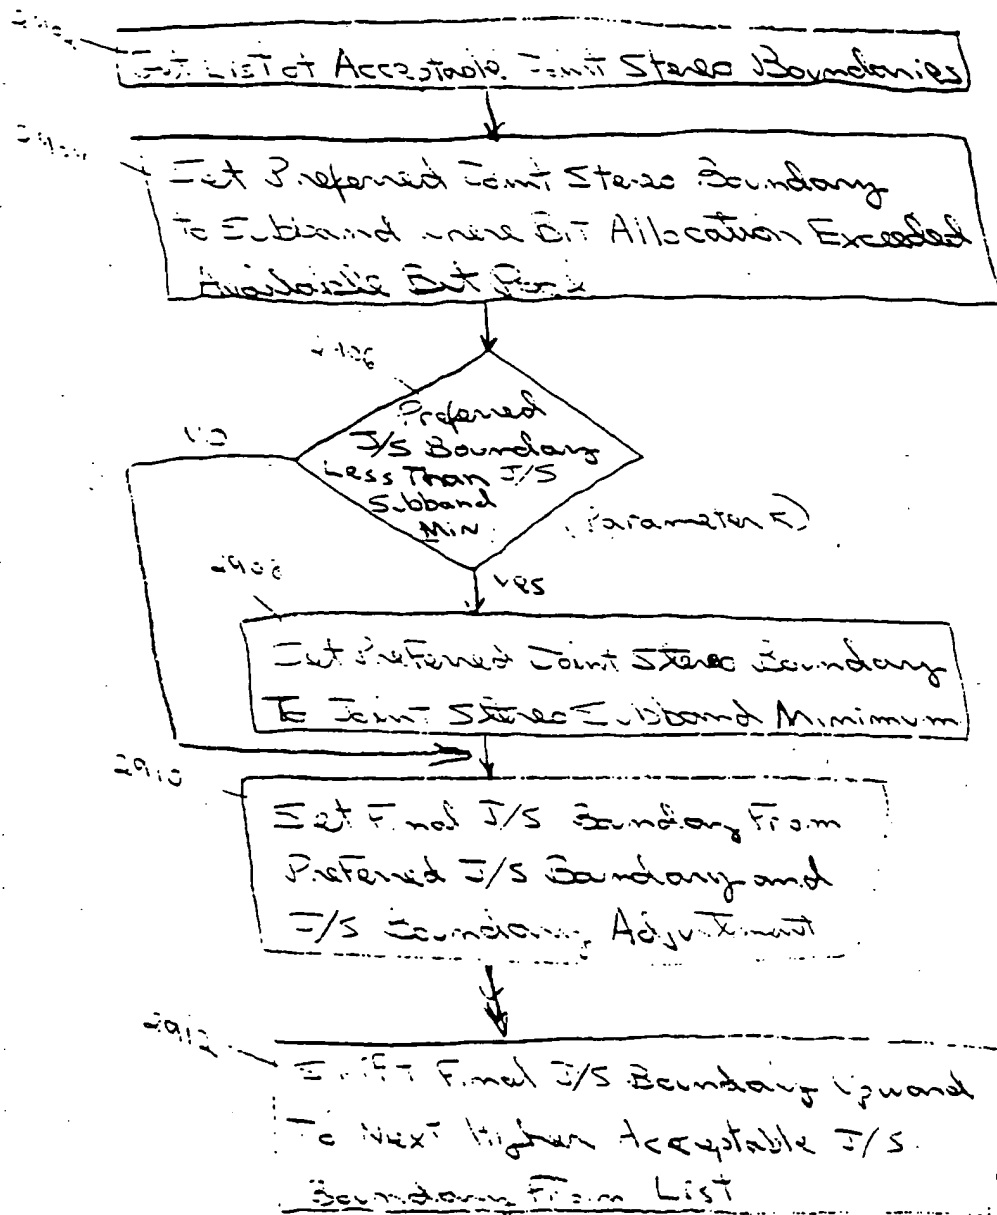 List of Acceptable Joint Stereo Boundaries
Set Preferred Joint Stereo Boundary
To Subband where Bit Allocation Exceeded
Available Bit Pool
Preferred
J/S Boundary
Less Than J/S
Subband
Min
(Parameter
NO
yes
2908
Set Preferred Joint Stereo Boundary
To Joint Stereo Subband Minimum
2910
Set Final J/S Boundary From
Preferred J/S Boundary and
J/S Boundary Adjustment
2912
Shift Final J/S Boundary Upward
To Next Higher Acceptable J/S
Boundary From List